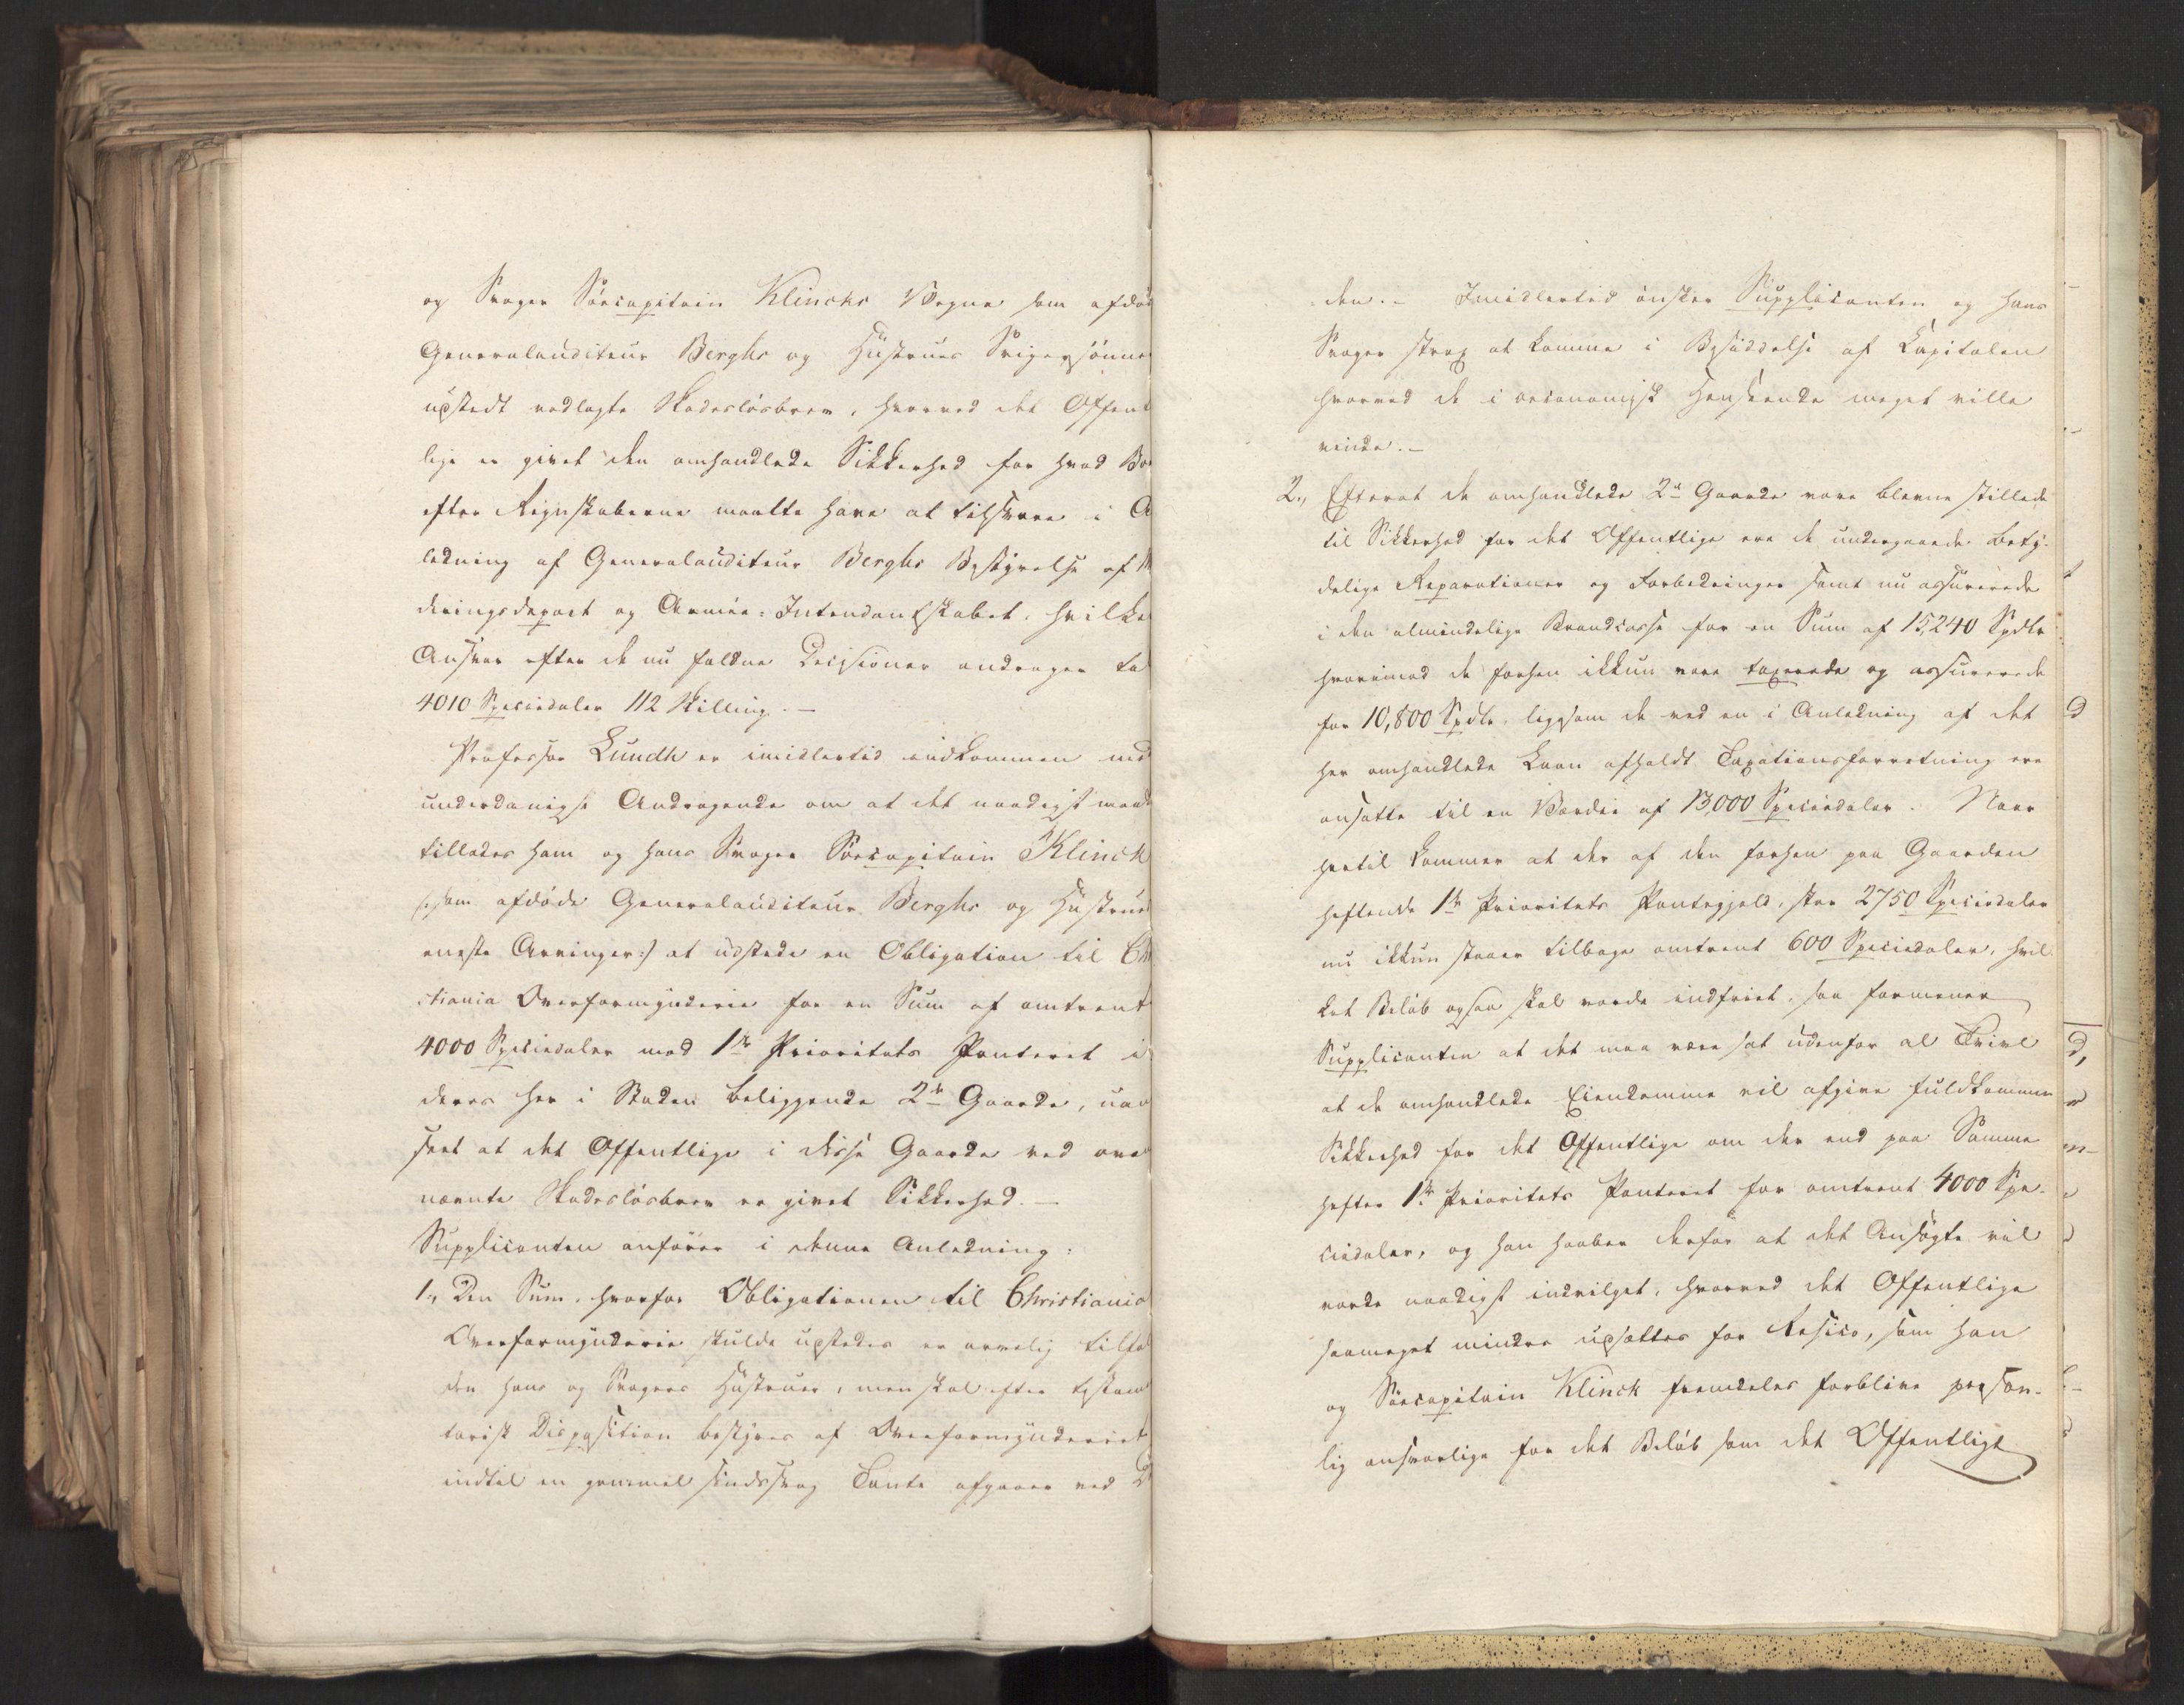 og Svoger Söecapitain Klincks Vegne som afdød
Generalauditeur Berghs og Hüstrues Svigersönner
üpstedt vedlagte Skadeslösbrev, hvorved det Offent
lige er givet den omhandlede Sikkerhed for hvad Bo
efter Regnskaberne maatte have at tilsvare i A
ledning af Generalauditeur Berghs Bestyrelse af
deringsdepart og Armée-Intendantskabet, hvilke
Ansvar efter de nu faldne Decisioner andrager ta
4010 Speciedaler 112 Skilling. —
Professor Lundh er imidlertid indkommen med
underdanigst Andragende om at det naadigst maat
tillades ham og hans Svoger Söecapitain Klinck
(:som afdöde Generalauditeur Berghs og Hüstrues
eneste Arvinger:) at udstede en Obligation til Chr
stiania Overformynderie for en Sum af omtrent
4000 Speciedaler mod 1ste Prioritets Panteret i
deres her i Staden beliggende 2de Gaarde, uan
seet at det Offentlige i disse Gaarde ved oven
nævnte Skadeslösbrev er givet Sikkerhed. —
Supplicanten anförer i denne Anledning:
1., Den Sum, hvorfor Obligationen til Christiania
Overformynderie skulde upstedes er arvelig tilfal
den hans og Svogers Hüstruer, men skal efter testam
tarisk Disposition bestyres af Overformynderiet
indtil en gammel sindssvag Tante afgaaer ved D
den. — Imidlertid önsker Supplicanten og hans
Svoger strax at komme i Besiddelse af Capitalen
hvorved de i oeconomisk Henseende meget ville
vinde. —
2., Efterat de omhandlede 2de Gaarde vare blevne stillede
til Sikkerhed for det Offentlige ere de undergaaede bety-
delige Reparationer og Forbedringer samt nu assurerede
i den almindelige Brandcasse for en Sum af 15,240 Spdlr
hvorimod de forhen ikkun vare taxerede og assurerede
for 10,800 Spdlr. ligesom de ved en i Anledning af det
her omhandlede Laan afholdt Taxationsforretning ere
ansatte til en Værdie af 13,000 Speciedaler. Naar
hertil kommer at der af den forhen paa Gaarden
heftende 1ste Prioritets Pantegjeld, stor 2750 Speciedaler
nu ikkun staaer tilbage omtrent 600 Speciedaler, hvil
ket Belöb ogsaa skal vorde indfriet, saa formener
Supplicanten at det maa være sat udenfor al Tvivl
at de omhandlede Eiendomme vil afgive fuldkommen
Sikkerhed for det Offentlige om der end paa Samme
hefter 1ste Prioritets Panteret for omtrent 4000 Spe-
ciedaler, og han haaber derfor at det Ansögte vil
vorde naadigst indvilget, hvorved det Offentlige
saameget mindre upsættes for Resico, som han
og Söecapitain Klinck fremdeles forblive person-
lig ansvarlige for det Belöb som det Offentlige